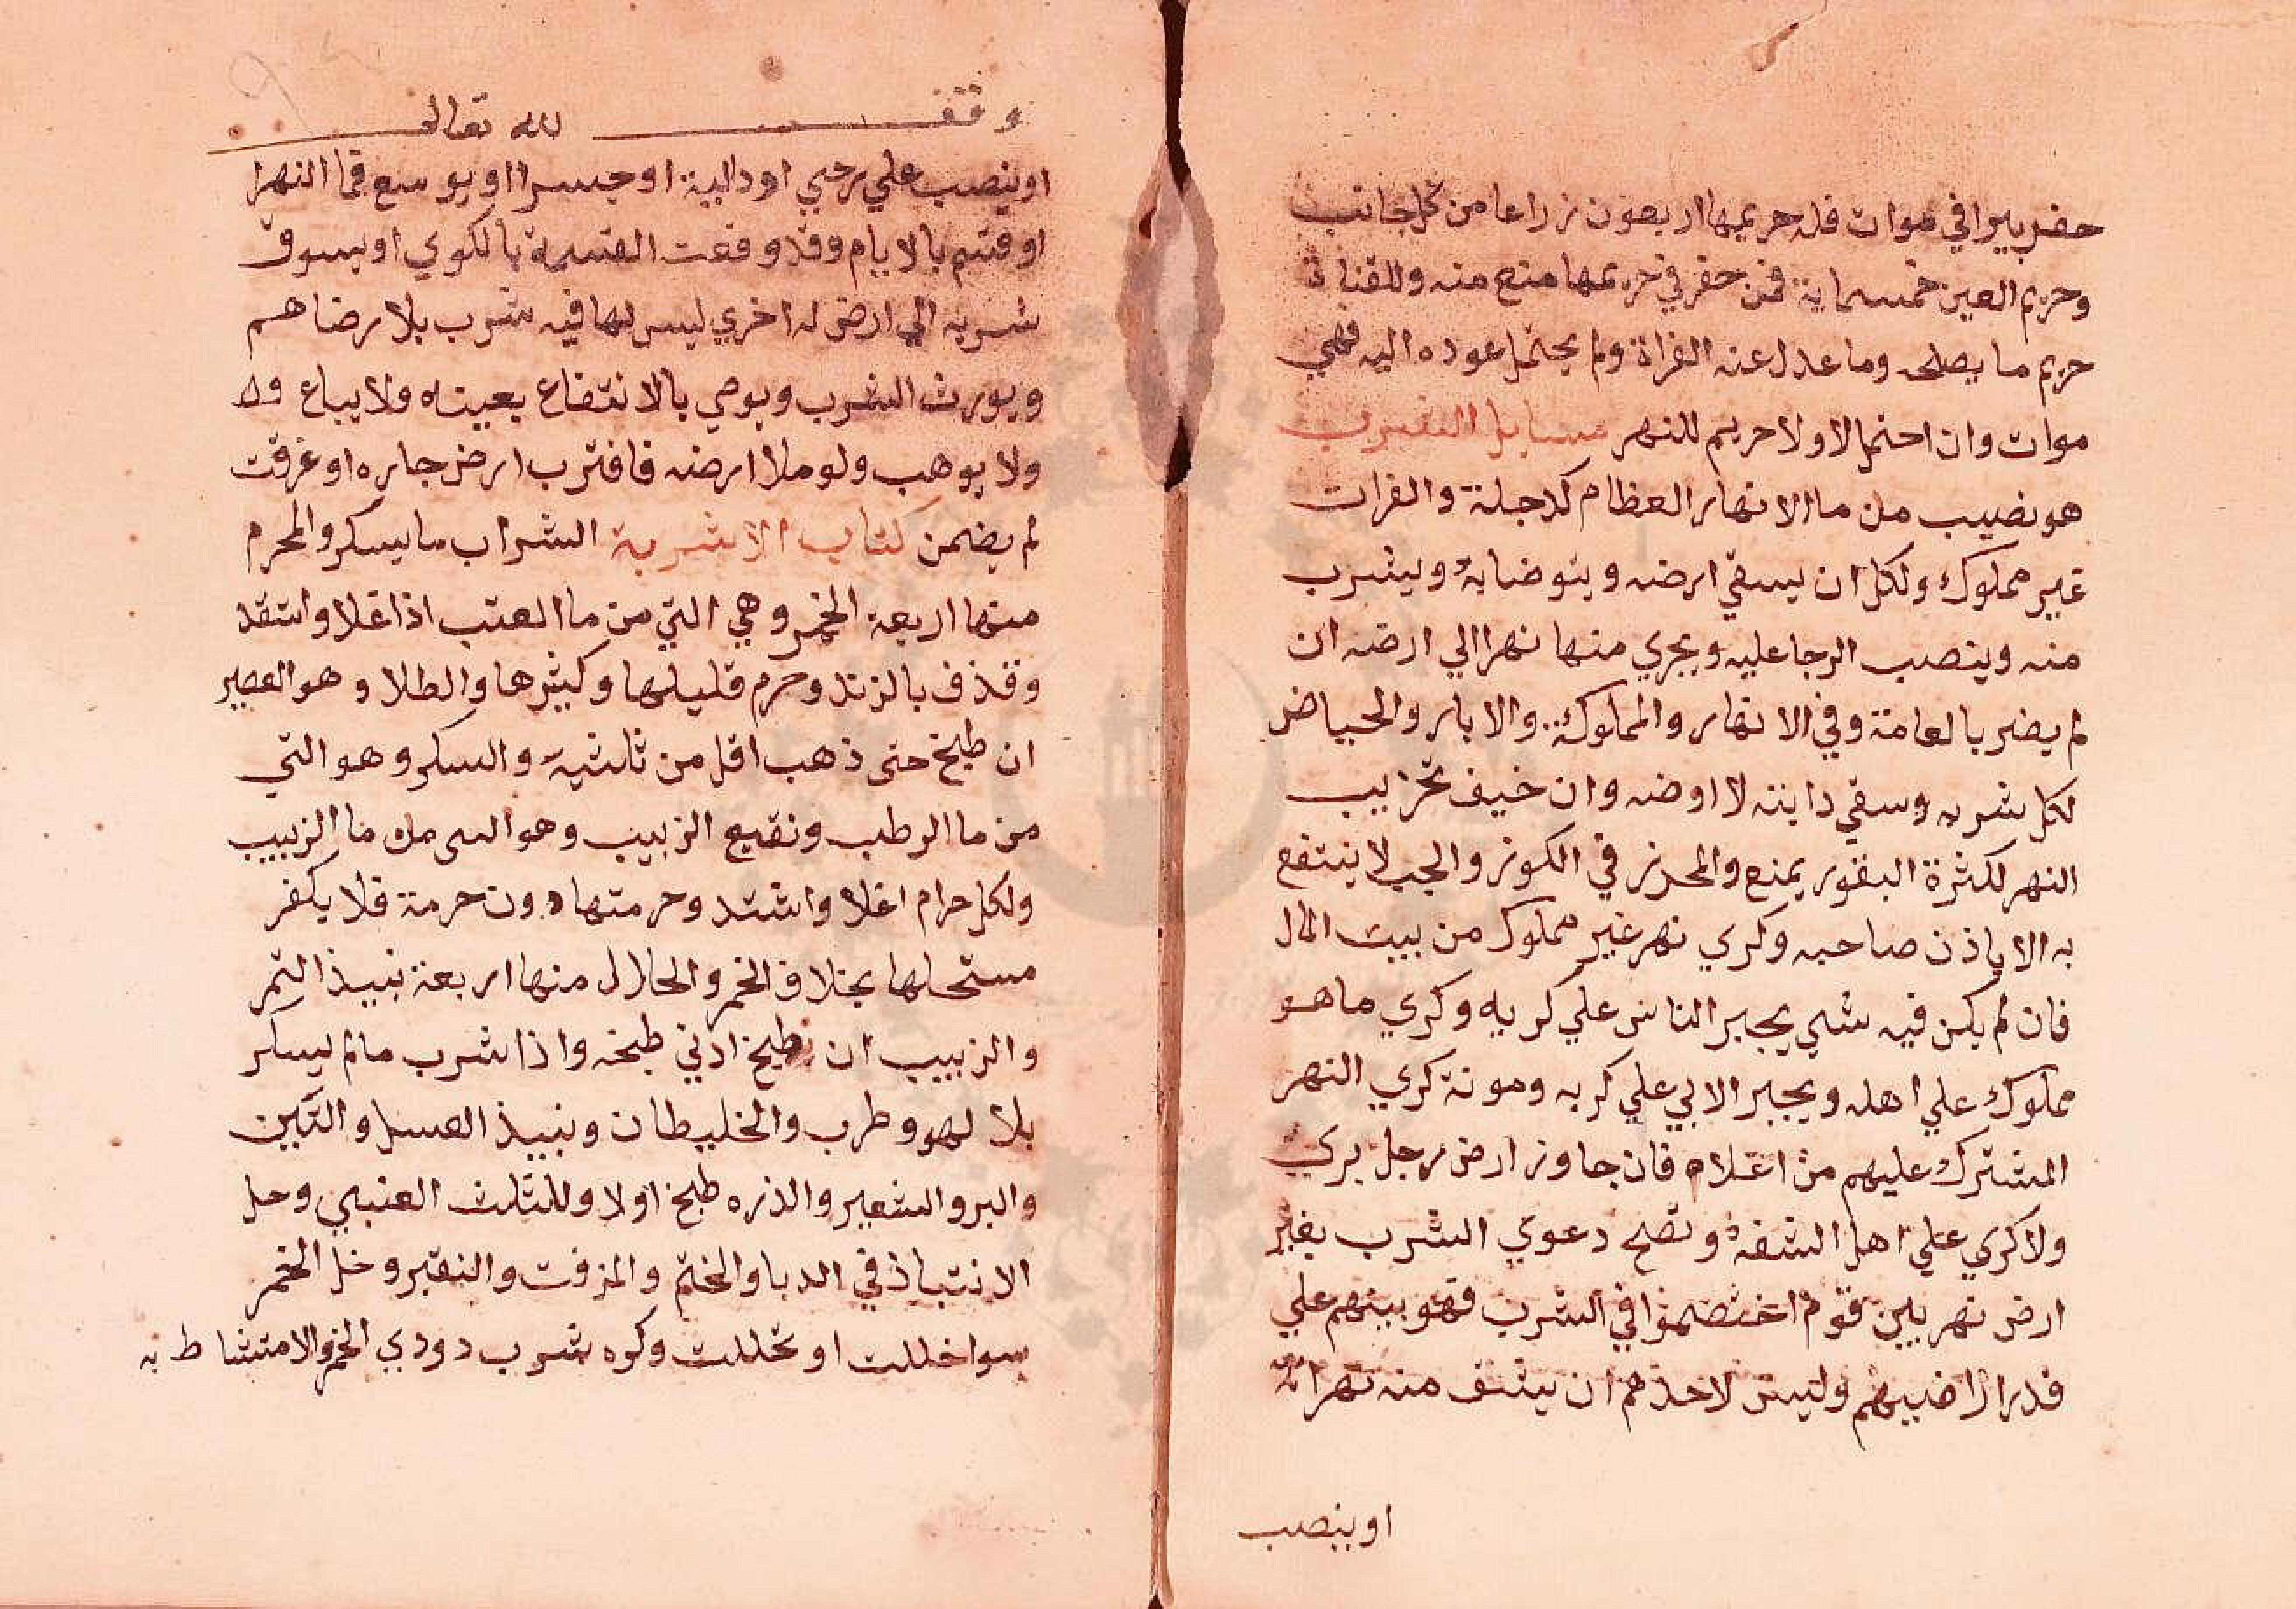 حفر بيرا في موات فله حريمها اربعون زراعا من كل جانب
وحريم العين خمسماية فمن حفر في حريمها منع منه وللقناة
حريم ما يصلحه وما عدل عنه الفراة ولم يحتمل عوده اليه فهي
موات وان احتمل لا ولا حريم للنهر مسايل الشرب
هو نصيب من ما الانهار العظام كدجلة والفرات
غير مملوك ولكل ان يسقي ارضه ويتوضا به ويشرب
منه وينصب الرحا عليه ويجري منها نهرا الي ارضه ان
لم يضر بالعامة وفي الانهار والمملوكة والابار والحياض
لكل شربه وسقي دابته لا ارضه وان خيف تخريب
النهر لكثرة البقور يمنع والمحرز في الكوز والجب لا ينتفع
به الا باذن صاحبه وكري نهر غير مملوك من بيت المال
فان لم يكن فيه شي يجبر الناس علي كريه وكري ما هو
مملوك علي اهله ويجبر الابي علي كريه ومونة كري النهر
المشترك عليهم من اعلاه فان جاوز ارض رجل بري
ولا كري علي اهل الشفة وتصح دعوي الشرب بغير
ارض نهر بين قوم اختصموا في الشرب فهو بينهم علي
قدر اراضيهم وليس لاحدهم ان يشق منه نهرا
او ينصب
وقف لله تعالى
او ينصب علي رحي او دالية او جسرا او يوسع فم النهر ا
او قسم بالايام وقد وقعت القسمة بالكوي او يسوق
شربه الي ارض له اخري ليس لها فيه شرب بلا رضاهم
ويورث الشرب ويوصي بالانتفاع بعينه ولا يباع
ولا يوهب ولو ملا ارضه فافترب ارض جاره او غرقت
لم يضمن كتاب الاشربة الشراب ما يسكر والمحرم
منها اربعة الخمر وهي التي من ما العنب اذا غلا واشتد
وقذف بالزبد وحرم قليلها وكثيرها والطلا وهو العصير
ان طبخ حتى ذهب اقل من ثلثيه والسكر وهو التي
من ما الرطب ونقيع الزبيب وهو الني من ما الزبيب
ولكل حرام اغلا واشتد وحرمتها دون حرمة فلا يكفر
مستحلها بخلاف الخمر والحلال منها اربعة نبيذ التمر
والزبيب ان طبخ ادني طبخه واذا شرب ما لم يسكر
بلا لهو وطرب والخليطان ونبيذ العسل والتين
والبر والشعير والذره طبخ اولا والمثلث العنبي وحل
الانتباذ في الدبا والحنتم والمزفت والنقير وخل الخمر
سوا خللت او تخللت وكره شرب دردي الخمر والامتشاط به